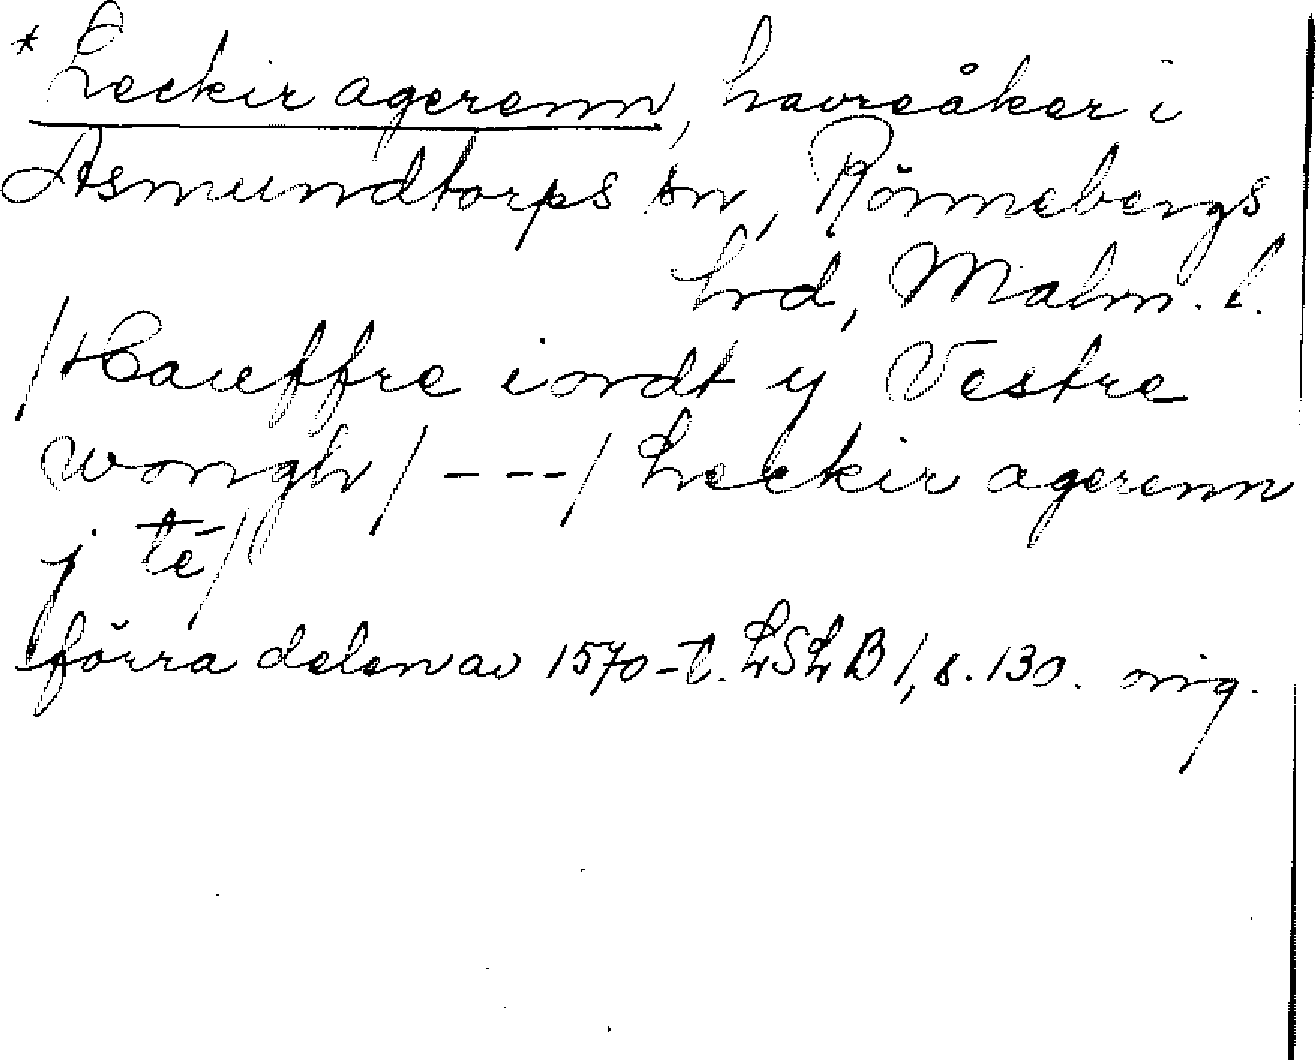 *Leckir agerenn, havreåker i
Asmundtorps sn, Rönnebergs
hrd, Malm. l.
/Hauffre iordt y Vestre
wongh/ ---/ Leckir agerenn
j té/
förra delen av 1570-t. LSLB 1, s. 130. orig.